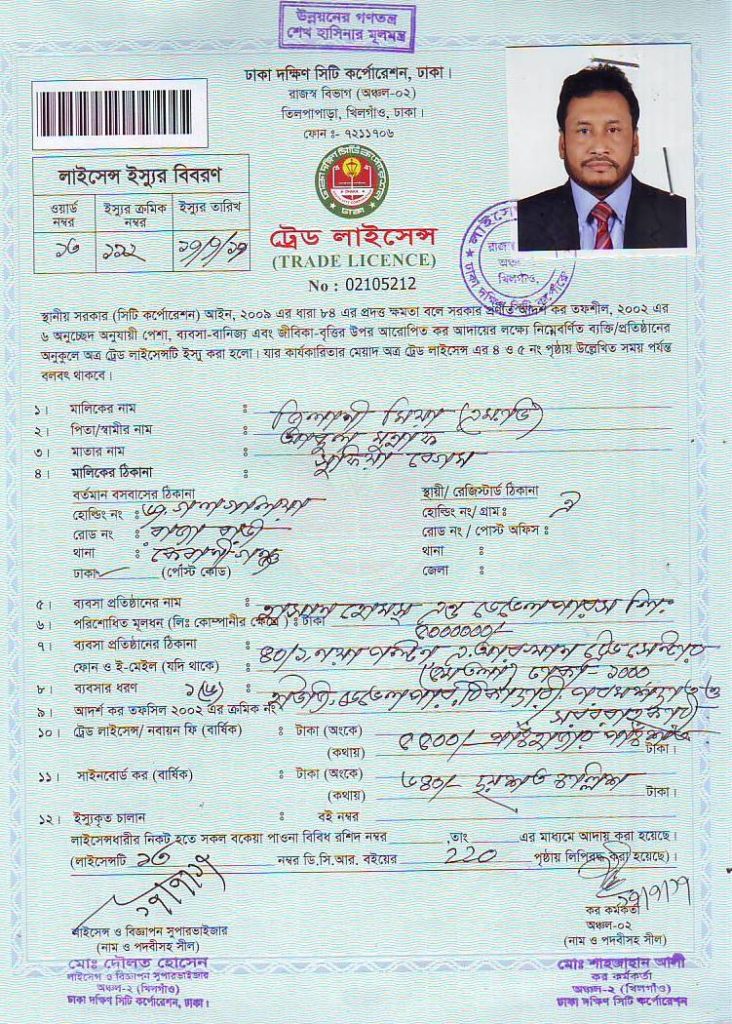 উন্নয়নের গণতন্ত্র
শেখ হাসিনার মূলমন্ত্র
ঢাকা দক্ষিণ সিটি কর্পোরেশন, ঢাকা।
রাজস্ব বিভাগ (অঞ্চল-০২)
তিলপাপাড়া, খিলগাঁও, ঢাকা।
ফোন ঃ- ৭২১১৭০৬
লাইসেন্স ইস্যুর বিবরণ
ওয়ার্ড নম্বর
ইস্যুর ক্রমিক নম্বর
ইস্যুর তারিখ
ট্রেড লাইসেন্স
(TRADE LICENCE)
No : 02105212
স্থানীয় সরকার (সিটি কর্পোরেশন) আইন, ২০০৯ এর ধারা ৮৪ এর প্রদত্ত ক্ষমতা বলে সরকার প্রণীত আদর্শ কর তফশীল, ২০০২ এর
৬ অনুচ্ছেদ অনুযায়ী পেশা, ব্যবসা-বানিজ্য এবং জীবিকা-বৃত্তির উপর আরোপিত কর আদায়ের লক্ষ্যে নিম্নেবর্ণিত ব্যক্তি/প্রতিষ্ঠানের
অনুকূলে অত্র ট্রেড লাইসেন্সটি ইস্যু করা হলো। যার কার্যকারিতার মেয়াদ অত্র ট্রেড লাইসেন্স এর ৪ ও ৫ নং পৃষ্ঠায় উল্লেখিত সময় পর্যন্ত
বলবৎ থাকবে।
১। মালিকের নাম ঃ জিলানী মিয়া (এমডি)
২। পিতা/স্বামীর নাম ঃ আব্দুল মন্নাফ
৩। মাতার নাম ঃ সুফিয়া বেগম
৪। মালিকের ঠিকানা ঃ
বর্তমান বসবাসের ঠিকানা
স্থায়ী/ রেজিস্টার্ড ঠিকানা
হোল্ডিং নং ঃ
হোল্ডিং নং/ গ্রাম ঃ ঐ
রোড নং ঃ
রোড নং / পোস্ট অফিস ঃ
থানা ঃ কেরানীগঞ্জ
থানা ঃ
ঢাকা (পোস্ট কোড)
জেলা ঃ
৫। ব্যবসা প্রতিষ্ঠানের নাম ঃ হোমস্ এন্ড ডেভেলপারস লিঃ
৬। পরিশোধিত মূলধন (লিঃ কোম্পানীর ক্ষেত্রে) ঃ টাকা ৫০০০০০০/-
৭। ব্যবসা প্রতিষ্ঠানের ঠিকানা ঃ ৪০/১, নয়া পল্টন, ট্রেড সেন্টার
ফোন ও ই-মেইল (যদি থাকে) ঃ ঢাকা-১০০০
৮। ব্যবসার ধরণ
৯। আদর্শ কর তফসিল ২০০২ এর ক্রমিক নং সরবরাহকারী
১০। ট্রেড লাইসেন্স/ নবায়ন ফি (বার্ষিক) ঃ টাকা (অংকে) ৫৫০০/-
(কথায়) টাকা।
১১। সাইনবোর্ড কর (বার্ষিক) ঃ টাকা (অংকে) ৬৪০/- ছয়শত চল্লিশ
(কথায়) টাকা।
১২। ইস্যুকৃত চালান ঃ বই নম্বর
লাইসেন্সধারীর নিকট হতে সকল বকেয়া পাওনা বিবিধ রশিদ নম্বর তাং এর মাধ্যমে আদায় করা হয়েছে।
(লাইসেন্সটি ১৩ নম্বর ডি.সি.আর. বইয়ের 220 পৃষ্ঠায় লিপিবদ্ধ করা হয়েছে)।
লাইসেন্স ও বিজ্ঞাপন সুপারভাইজার
(নাম ও পদবীসহ সীল)
মোঃ দৌলত হোসেন
লাইসেন্স ও বিজ্ঞাপন সুপারভাইজার
অঞ্চল-২ (খিলগাঁও)
ঢাকা দক্ষিণ সিটি কর্পোরেশন, ঢাকা।
কর কর্মকর্তা
অঞ্চল-০২
(নাম ও পদবীসহ সীল)
মোঃ শাহজাহান আলী
কর কর্মকর্তা
অঞ্চল-২ (খিলগাঁও)
ঢাকা দক্ষিণ সিটি কর্পোরেশন